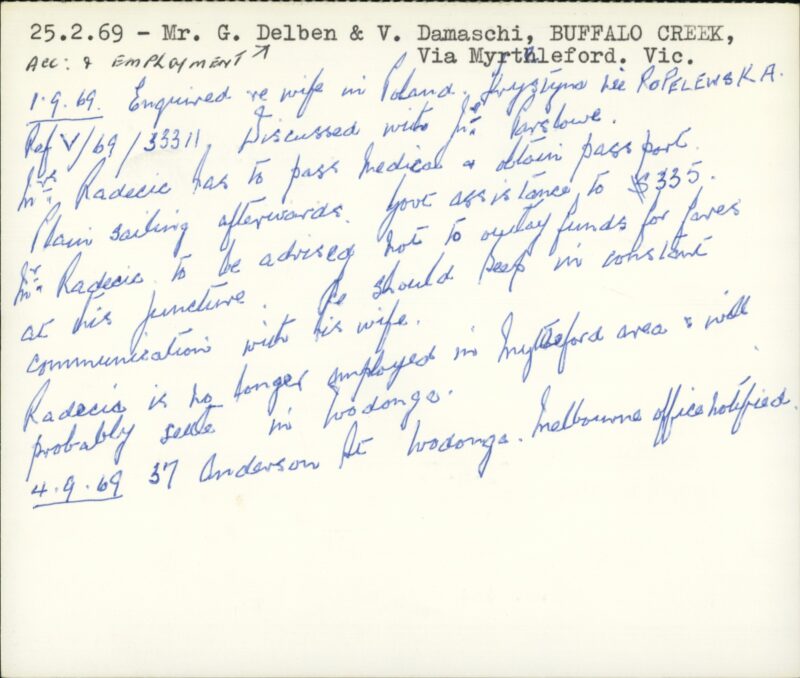 25.2.69 - Mr. G. Delben & V. Damaschi, BUFFALO CREEK,
Via Myrthleford. Vic.
Acc: & EMPLOYMENT ↗
1.9.69. Enquired re wife in Poland. Krystyna née ROPELEWSKA.
Ref V/69/33311. Discussed with Mr Parslowe.
Mrs Radecic has to pass medical & obtain passport.
Plain sailing afterwards. Govt assistance to $335.
Mr Radecic to be advised not to outlay funds for fares
at this juncture. He should keep in constant
communication with his wife.
Radecic is no longer employed in Myrtleford area & will
probably settle in Wodonga.
4.9.69 37 Anderson St Wodonga. Melbourne office notified.